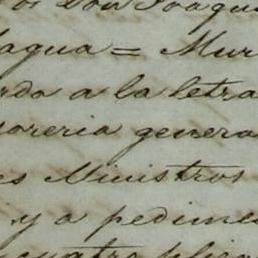 os Don Joaqu
agua = Mur
rda a la letra
soreria genera
es Ministros
y a pedimen
cuatro